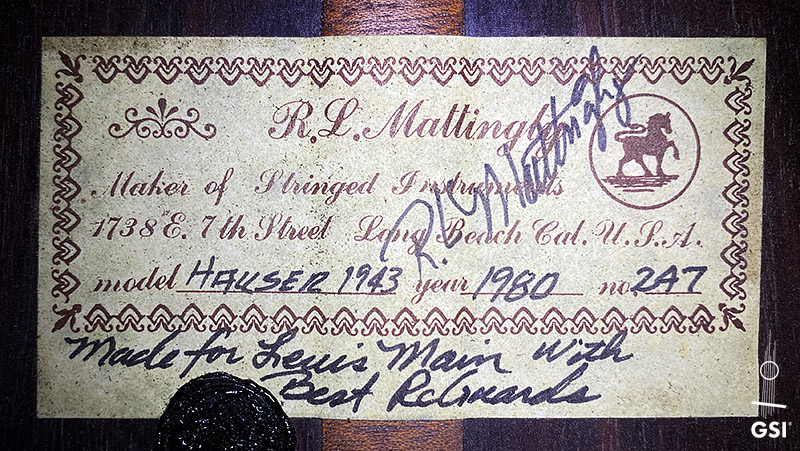 R.L. Mattingly
R.L. Mattingly
Maker of Stringed Instruments
1738 E. 7th Street Long Beach Cal. U.S.A.
model HAUSER 1943 year 1980 no. 247
Made for Lewis Main with
Best Reguards
GSI